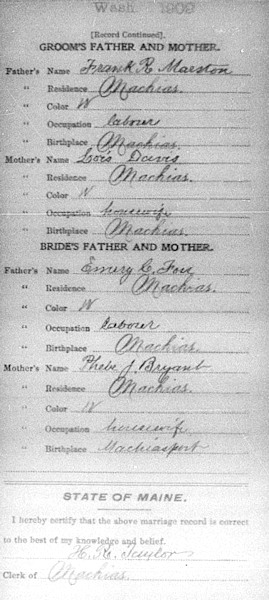 Wash 1902
[Record Continued].
GROOM'S FATHER AND MOTHER.
Father's Name Frank R. Marston
" Residence Machias.
" Color W
" Occupation labourer
" Birthplace Machias.
Mother's Name Lois Davis
" Residence Machias.
" Color W
" Occupation housewife
" Birthplace Machias.
BRIDE'S FATHER AND MOTHER.
Father's Name Emery C. Foss
" Residence Machias.
" Color W
" Occupation labourer
" Birthplace Machias.
Mother's Name Phebe J. Bryant
" Residence Machias.
" Color W
" Occupation housewife
" Birthplace Machiasport
STATE OF MAINE.
I hereby certify that the above marriage record is correct
to the best of my knowledge and belief.
H. H. Taylor
Clerk of Machias.